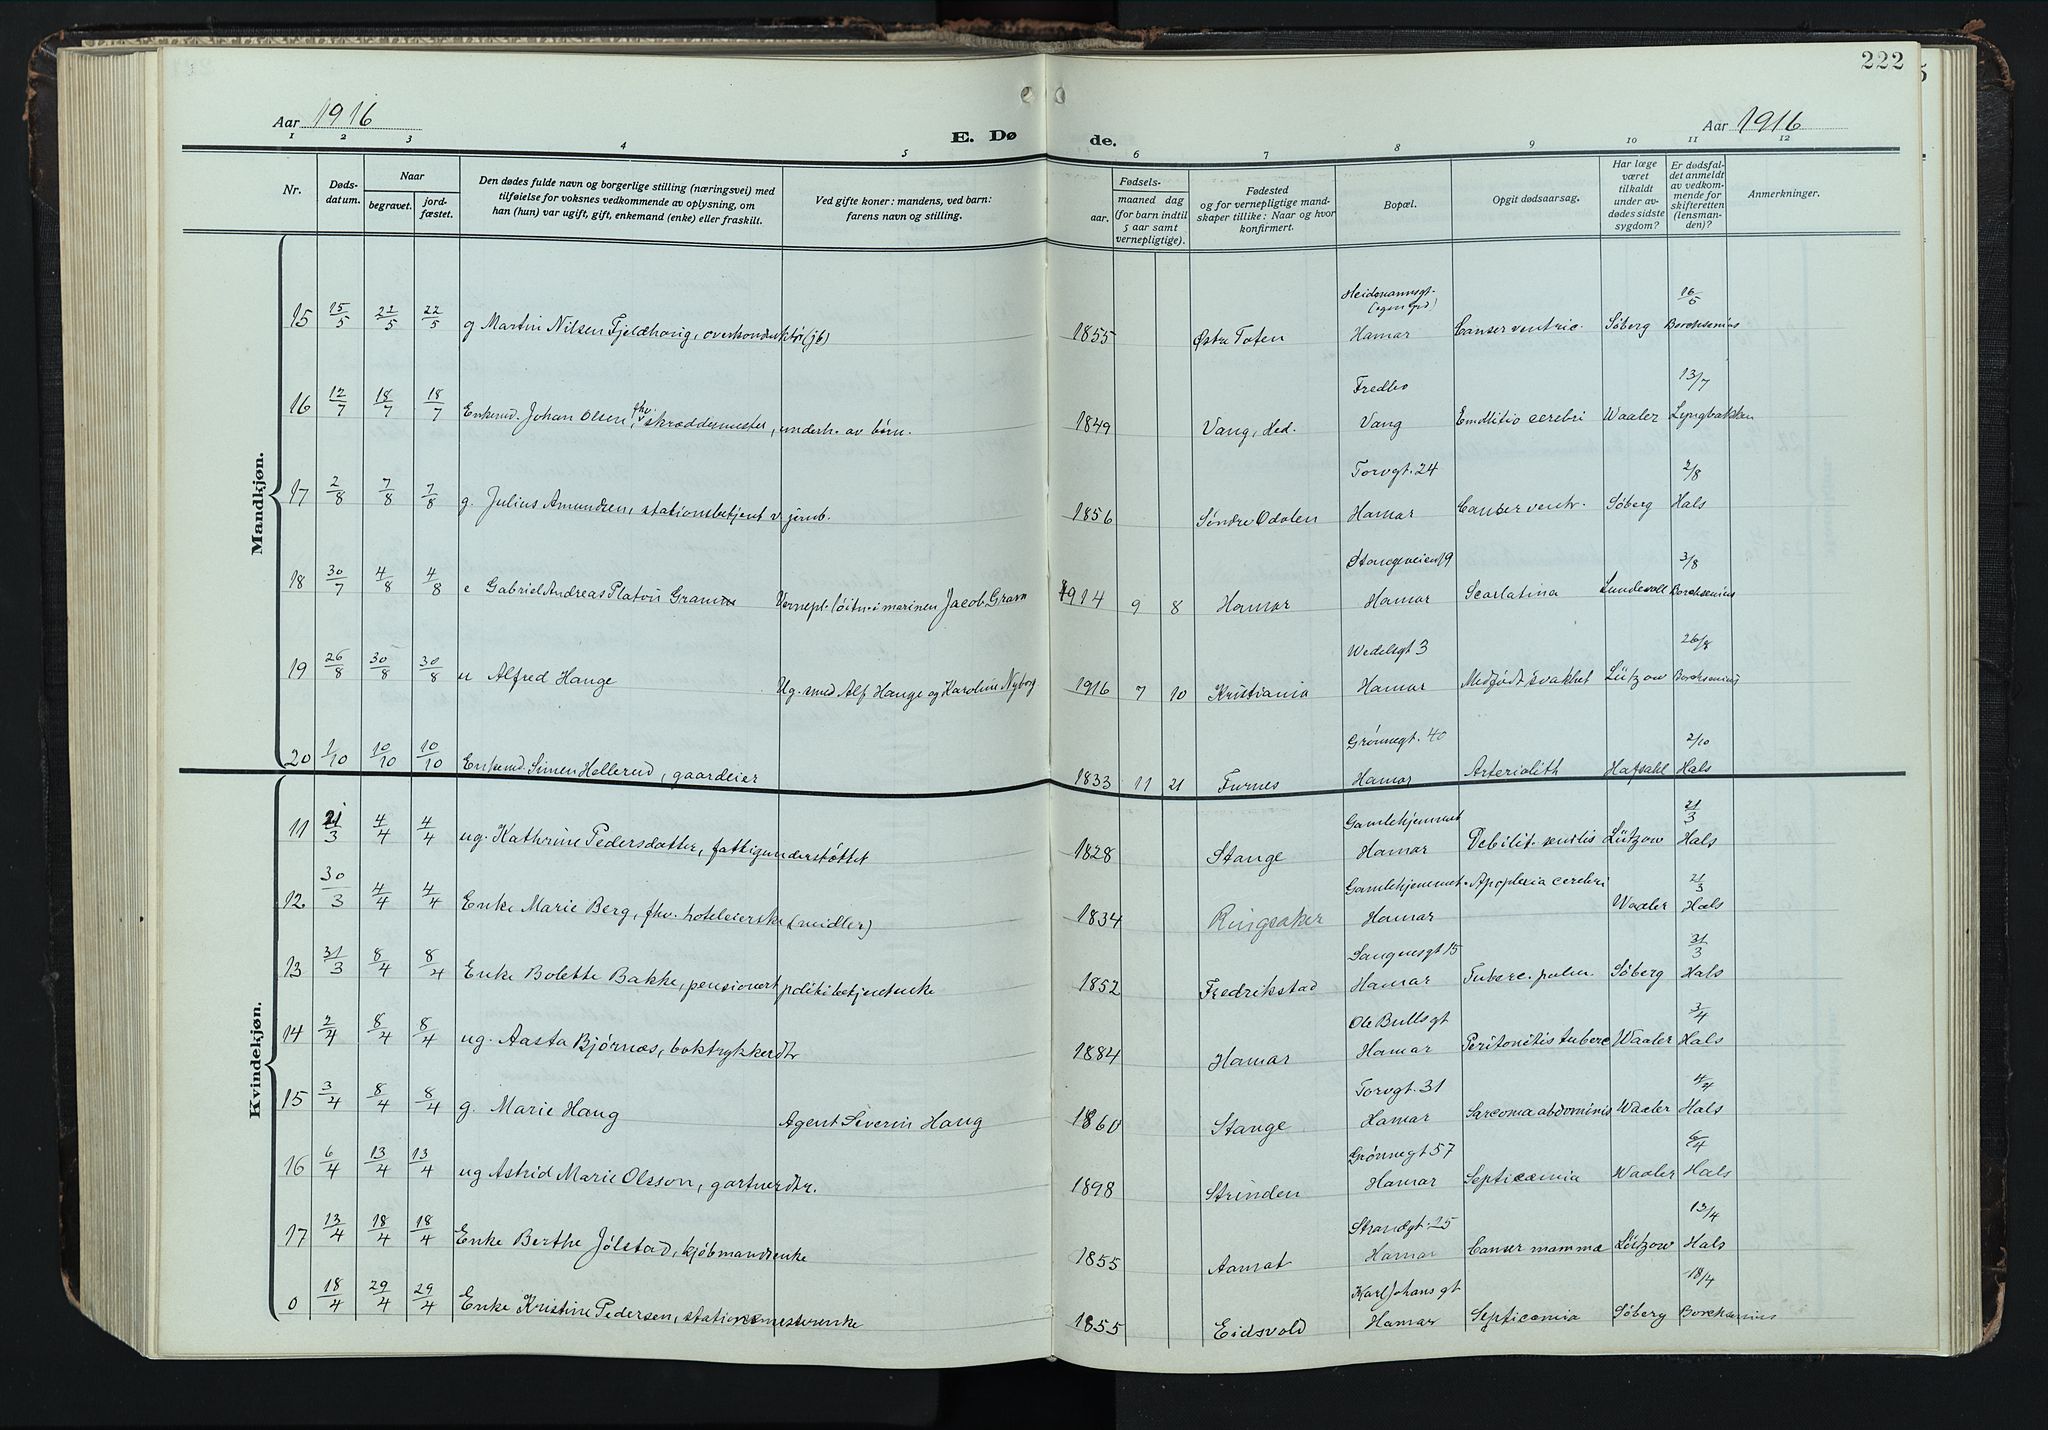 222
Aar 1916
E. Dø
de.
Aar 1916
1 2 3 4 5 6 7 8 9 10 11 12
Nr.
Døds-
datum.
Naar
begravet.
jord-
fæstet.
Den dødes fulde navn og borgerlige stilling (næringsvei) med
tilføielse for voksnes vedkommende av oplysning, om
han (hun) var ugift, gift, enkemand (enke) eller fraskilt.
Ved gifte koner: mandens, ved barn:
farens navn og stilling.
Fødsels-
aar.
maaned dag
(for barn indtil
5 aar samt
vernepligtige).
Fødested
og for vernepligtige mand-
skaper tillike: Naar og hvor
konfirmert.
Bopæl.
Opgit dødsaarsag.
Har læge
været
tilkaldt
under av-
dødes sidste
sygdom?
Er dødsfal-
det anmeldt
av vedkom-
mende for
skifteretten
(lensman-
den)?
Anmerkninger.
Mandkjøn.
15 15/5 22/5 22/5 g Martin Nilsen Fjeldhaug, overkonduktør (jb) 1855 Østre Toten Heidmannsgt. Hamar Canser ventric. Søberg 16/5 Borchsenius
16 12/7 18/7 18/7 Enkemd. Johan Olsen, fhv. skræddermester, underh. av børn. 1849 Vang, Hed. Fredbo Vang Emollitio cerebri Waaler 13/7 Lyngbakken
17 2/8 7/8 7/8 g. Julius Amundsen, stationsbetjent v. jernb. 1856 Søndre Odalen Torvgt. 24 Hamar Canser ventr. Søberg 2/8 Hals
18 30/7 4/8 4/8 e Gabriel Andreas Platou Gram Vernepl. løitn. i marinen Jacob Gram 1914 9 8 Hamar Stangeveien 19 Hamar Scarlatina Lundevall 3/8 Borchsenius
19 26/8 30/8 30/8 u Alfred Hauge Ug. smed Alf Hauge og Karoline Nyborg 1916 7 10 Kristiania Wedelsgt 3 Hamar Medfødt svakhet Lützow 26/8 Borchsenius
20 1/10 10/10 10/10 Enkemd. Simen Hellerud, gaardeier 1833 11 21 Furnes Grønnegt. 40 Hamar Hafsahl 2/10 Hals
Kvindekjøn.
11 21/3 4/4 4/4 ug. Kathrine Pedersdatter, fattigunderstøttet 1828 Stange Gamlehjemmet Hamar Debilit. senilis Lützow 21/3 Hals
12 30/3 4/4 4/4 Enke Marie Berg, fhv. hoteleierske (midler) 1834 Ringsaker Gamlehjemmet Hamar Apoplexia cerebri Waaler 21/3 Hals
13 31/3 8/4 8/4 Enke Bolette Bakke, pensionert politibetjentenke 1852 Fredrikstad Hamar Tuberc. pulm. Søberg 31/3 Hals
14 2/4 8/4 8/4 ug. Aasta Bjørnæs, boktrykkerdtr 1884 Hamar Ole Bulls gt Hamar Peritonitis tuberc Waaler 3/4 Hals
15 3/4 8/4 8/4 g. Marie Haug Agent Severin Haug 1860 Stange Torvgt. 31 Hamar Sarcoma abdominis Waaler 4/4 Hals
16 6/4 13/4 13/4 ug Astrid Marie Olsson, gartnerdtr. 1898 Strinden Grønnegt 57 Hamar Septicæmia Waaler 6/4 Hals
17 13/4 18/4 18/4 Enke Berthe Jølstad, kjøbmandsenke 1855 Aamot Strandgt. 25 Hamar Canser mammæ Lützow 13/4 Hals
0 18/4 29/4 29/4 Enke Kristine Pedersen, stationsmesterenke 1855 Eidsvold Karl Johans gt Hamar Septicæmia Søberg 18/4 Borchsenius